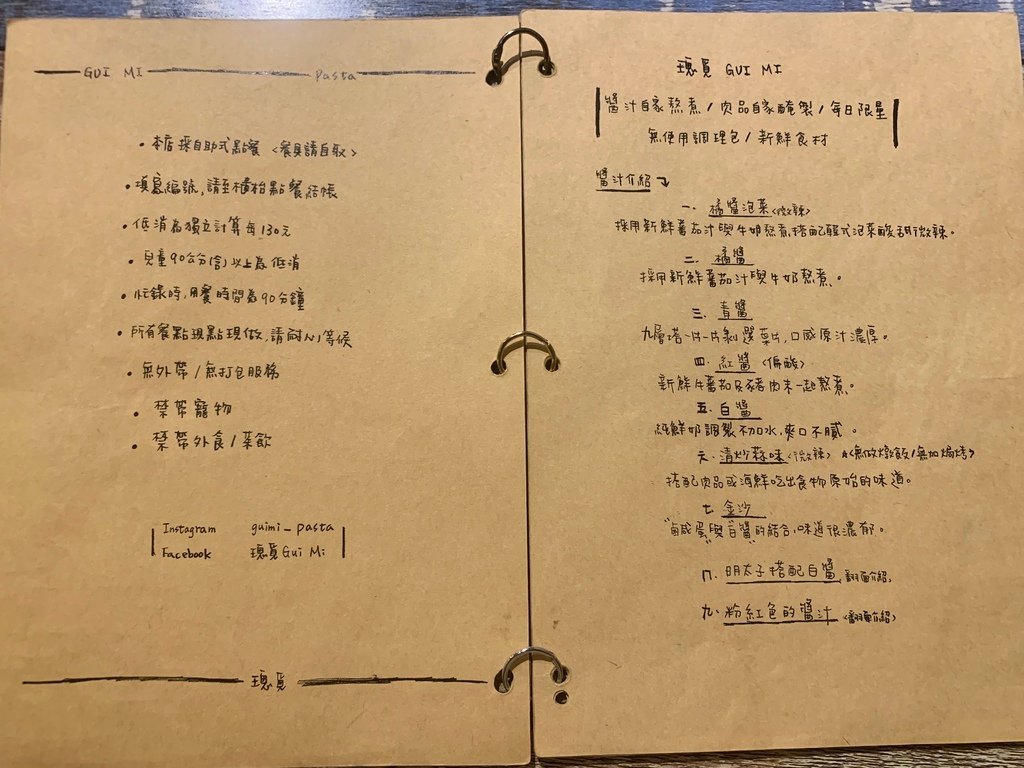 GUI MI Pasta
• 本店採自助式點餐 <餐具請自取>
• 填寫編號,請至櫃枱點餐結帳
• 低消為獨立計算每130元
• 兒童90公分(含)以上為低消
• 忙錄時,用餐時間為90分鐘
• 所有餐點現點現做,請耐心等候
• 無外帶/無打包服務
• 禁帶寵物
• 禁帶外食/菜飲
Instagram guimi_pasta
Facebook 瑰覓Gui Mi
瑰覓
瑰覓 GUI MI
醬汁自家熬煮/肉品自家醃製/每日限量
無使用調理包/新鮮食材
醬汁介紹
一. 橘醬泡菜<微辣>
採用新鮮蕃茄汁與牛奶熬煮,搭配韓式泡菜酸甜微辣。
二. 橘醬
採用新鮮蕃茄汁與牛奶熬煮。
三. 青醬
九層塔一片一片剝選葉片,口感原汁濃厚。
四. 紅醬<偏酸>
新鮮牛蕃茄及豬肉末一起熬煮。
五. 白醬
純鮮奶調製不加水,爽口不膩。
六. 清炒蒜味<微辣> *<無做燉飯/無加焗烤>
搭配肉品或海鮮吃出食物原始的味道。
七. 金沙
"鹹蛋"與"白醬"的結合,味道很濃郁。
八. 明太子搭配白醬 翻面介紹,
九. 粉紅色的醬汁 <翻面介紹>